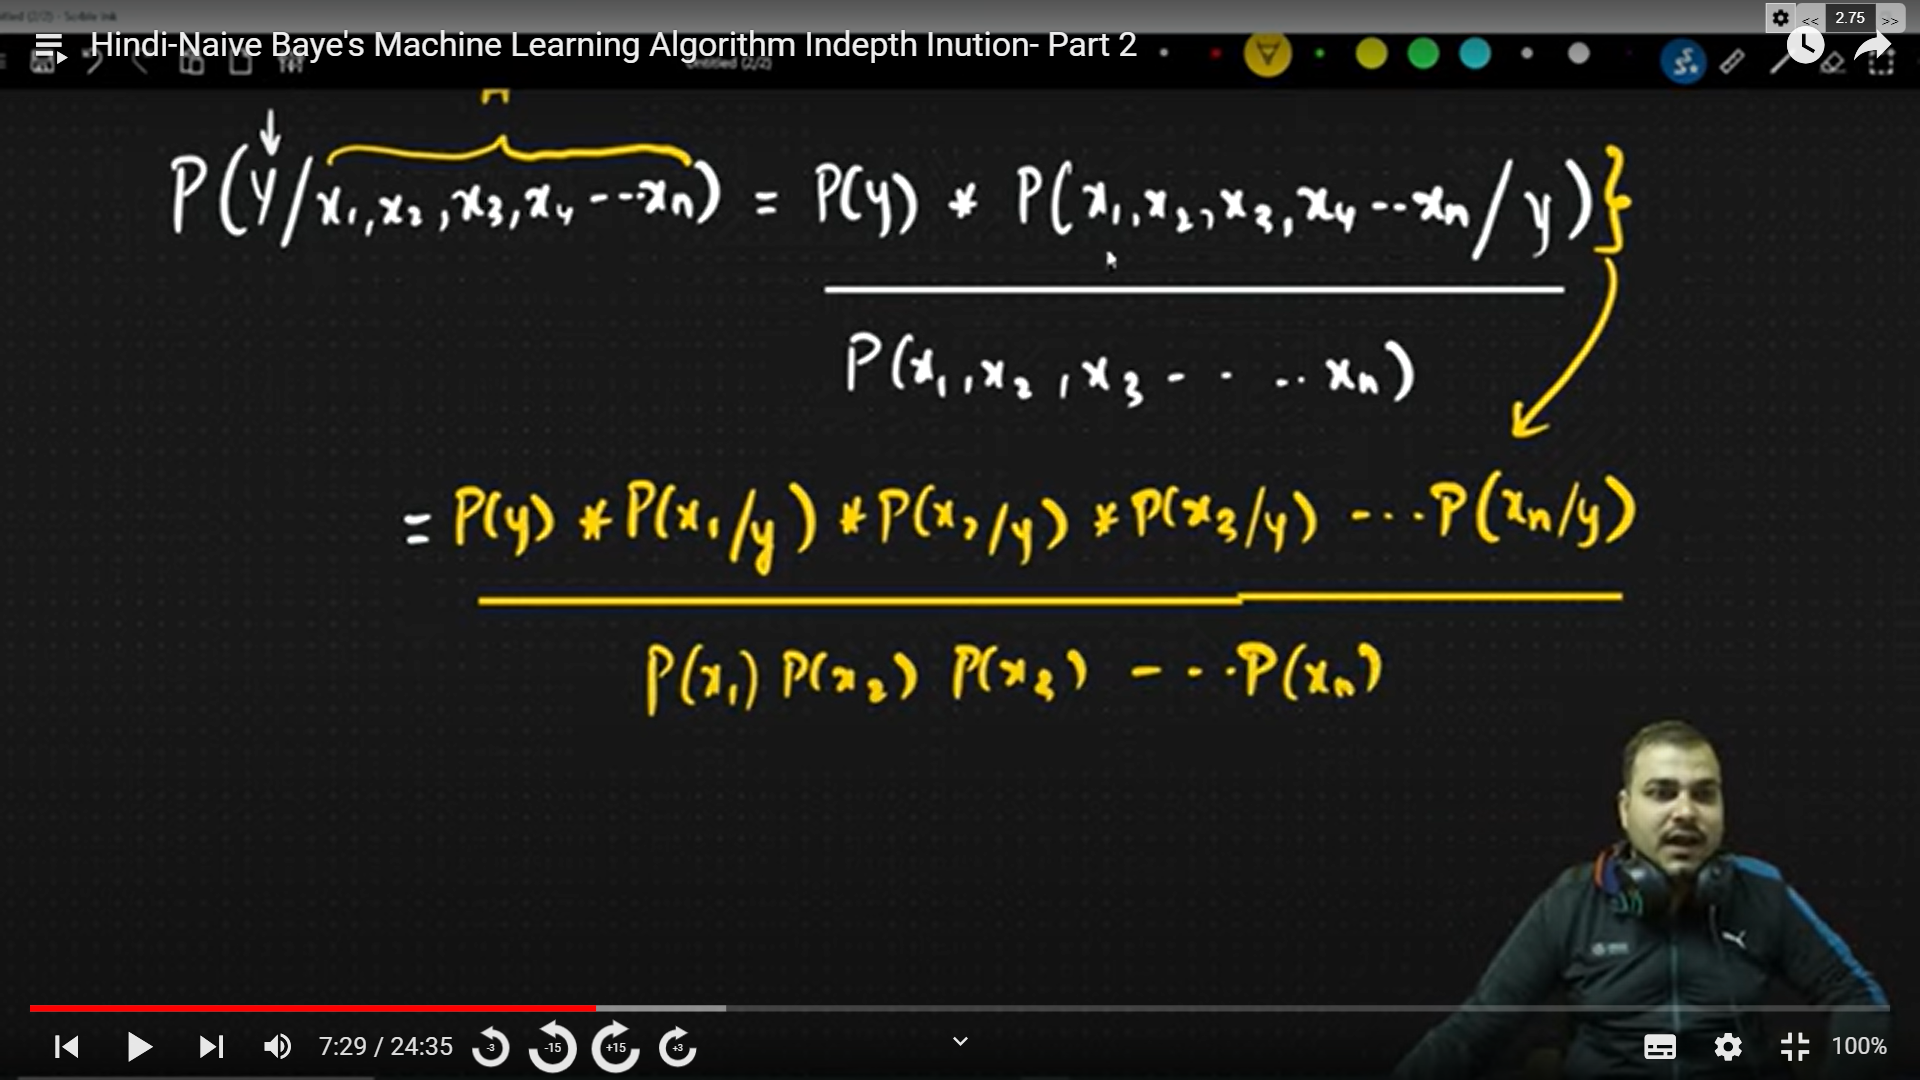 Untitled (2/2) - Scribble Ink
<< 2.75 >>
Hindi-Naive Baye's Machine Learning Algorithm Indepth Inution- Part 2
Untitled (2/2)
P(y/x₁,x₂,x₃,x₄ ---xₙ) = P(y) * P(x₁,x₂,x₃,x₄--xₙ/y)}
P(x₁,x₂,x₃- - -.. xₙ)
= P(y) * P(x₁/y) * P(x₂/y) * P(x₃/y) ---. P(xₙ/y)
P(x₁) P(x₂) P(x₃) - - -. P(xₙ)
7:29 / 24:35 -3 -15 +15 +3 100%